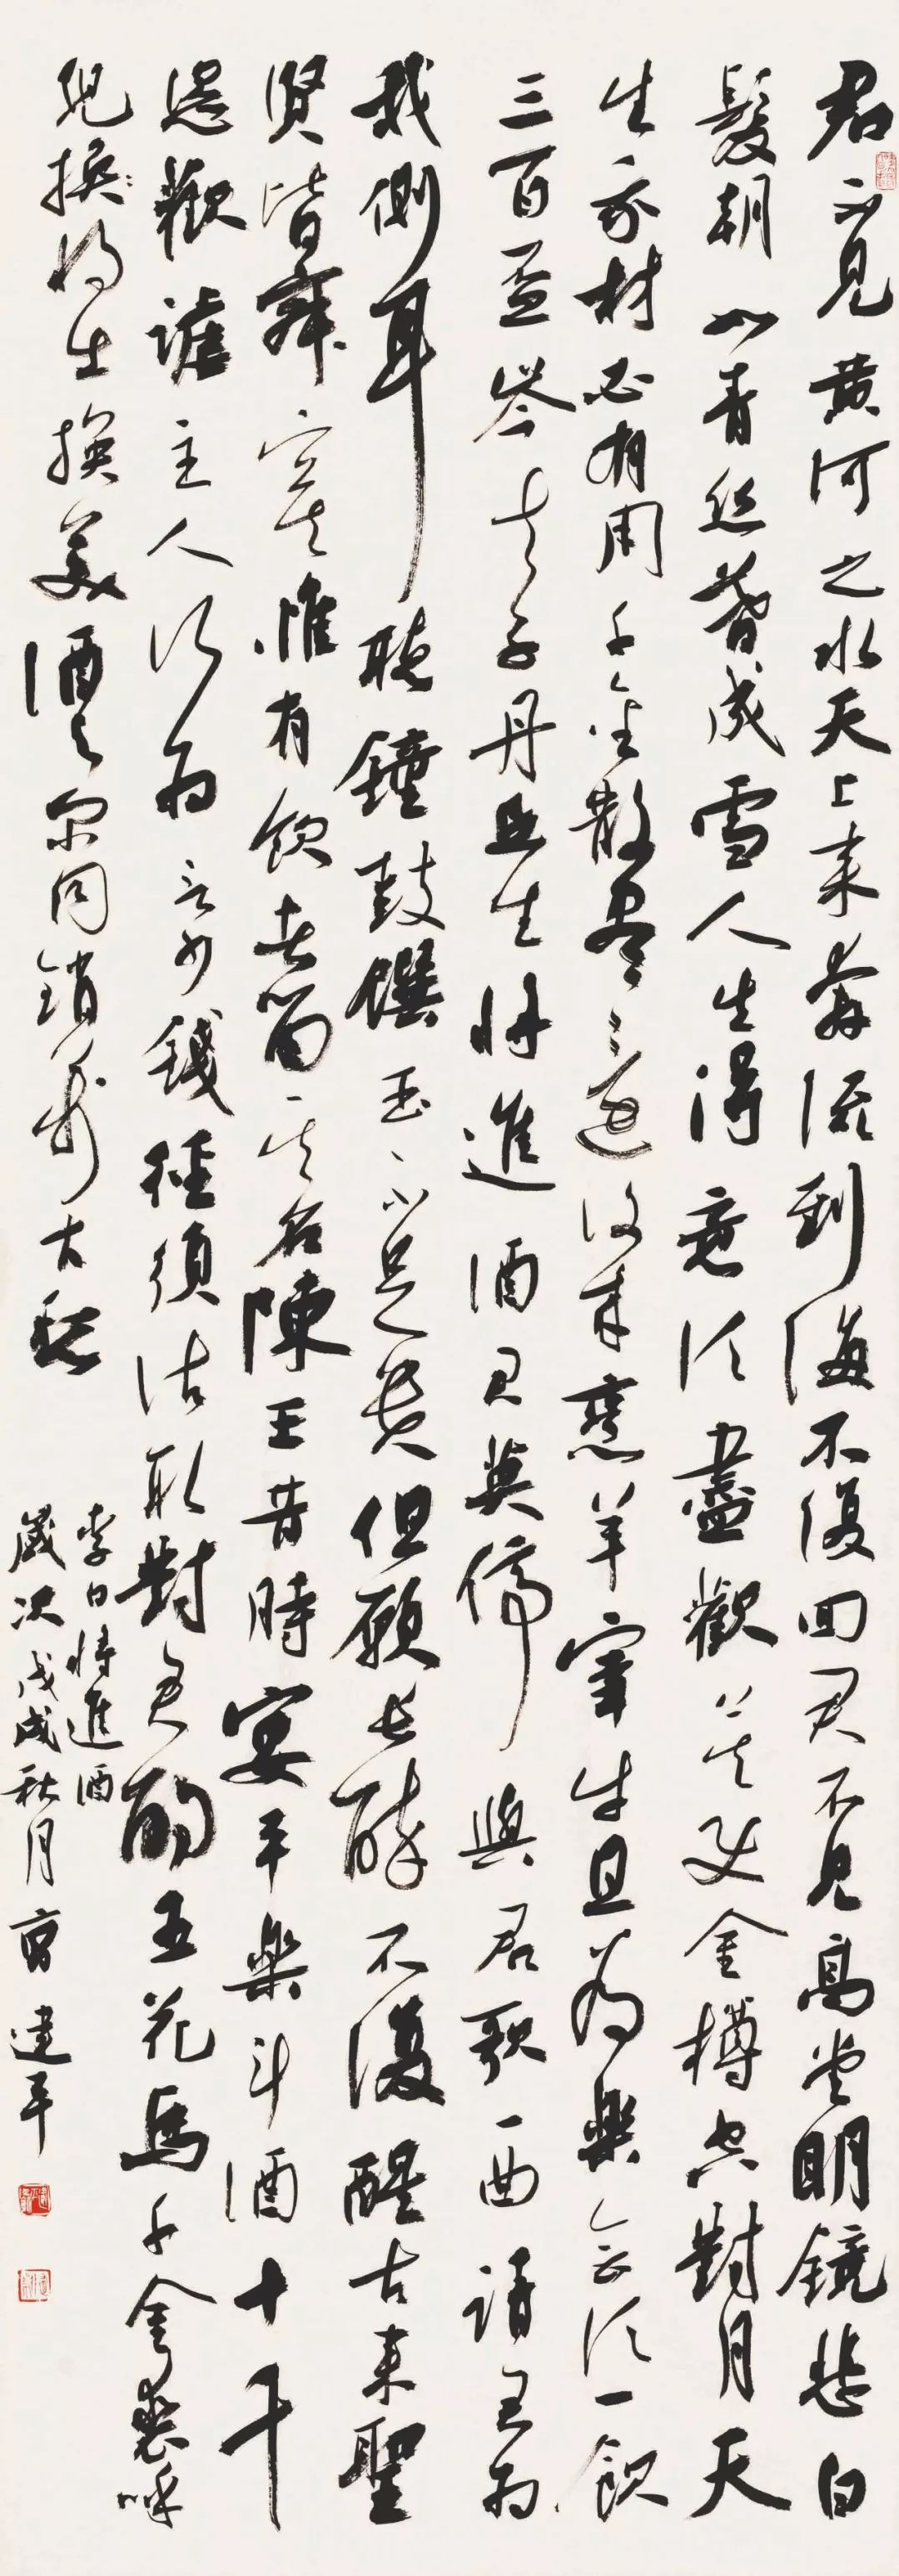 君不見黃河之水天上來奔流到海不復回君不見高堂明鏡悲白
髮朝如青絲暮成雪人生得意須盡歡莫使金樽空對月天
生我材必有用千金散盡還復來烹羊宰牛且為樂會須一飲
三百盃岑夫子丹丘生將進酒君莫停與君歌一曲請君為
我側耳聽鐘鼓饌玉不足貴但願長醉不復醒古來聖
賢皆寂寞惟有飲者留其名陳王昔時宴平樂斗酒十千
恣歡謔主人何為言少錢徑須沽取對君酌五花馬千金裘呼
兒換將出換美酒與爾同銷萬古愁
李白將進酒
歲次戊戌秋月曹建平